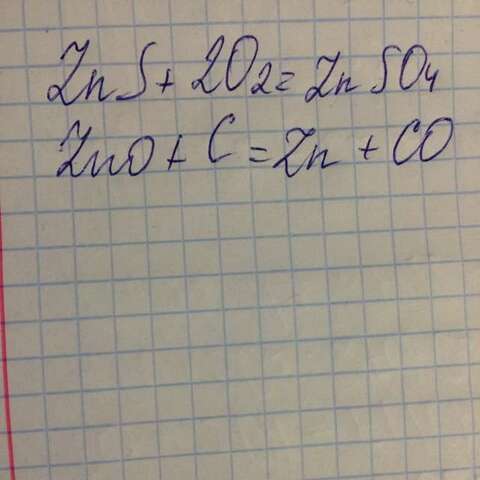 ZnS + 2O₂ = ZnSO₄
ZnO + C = Zn + CO